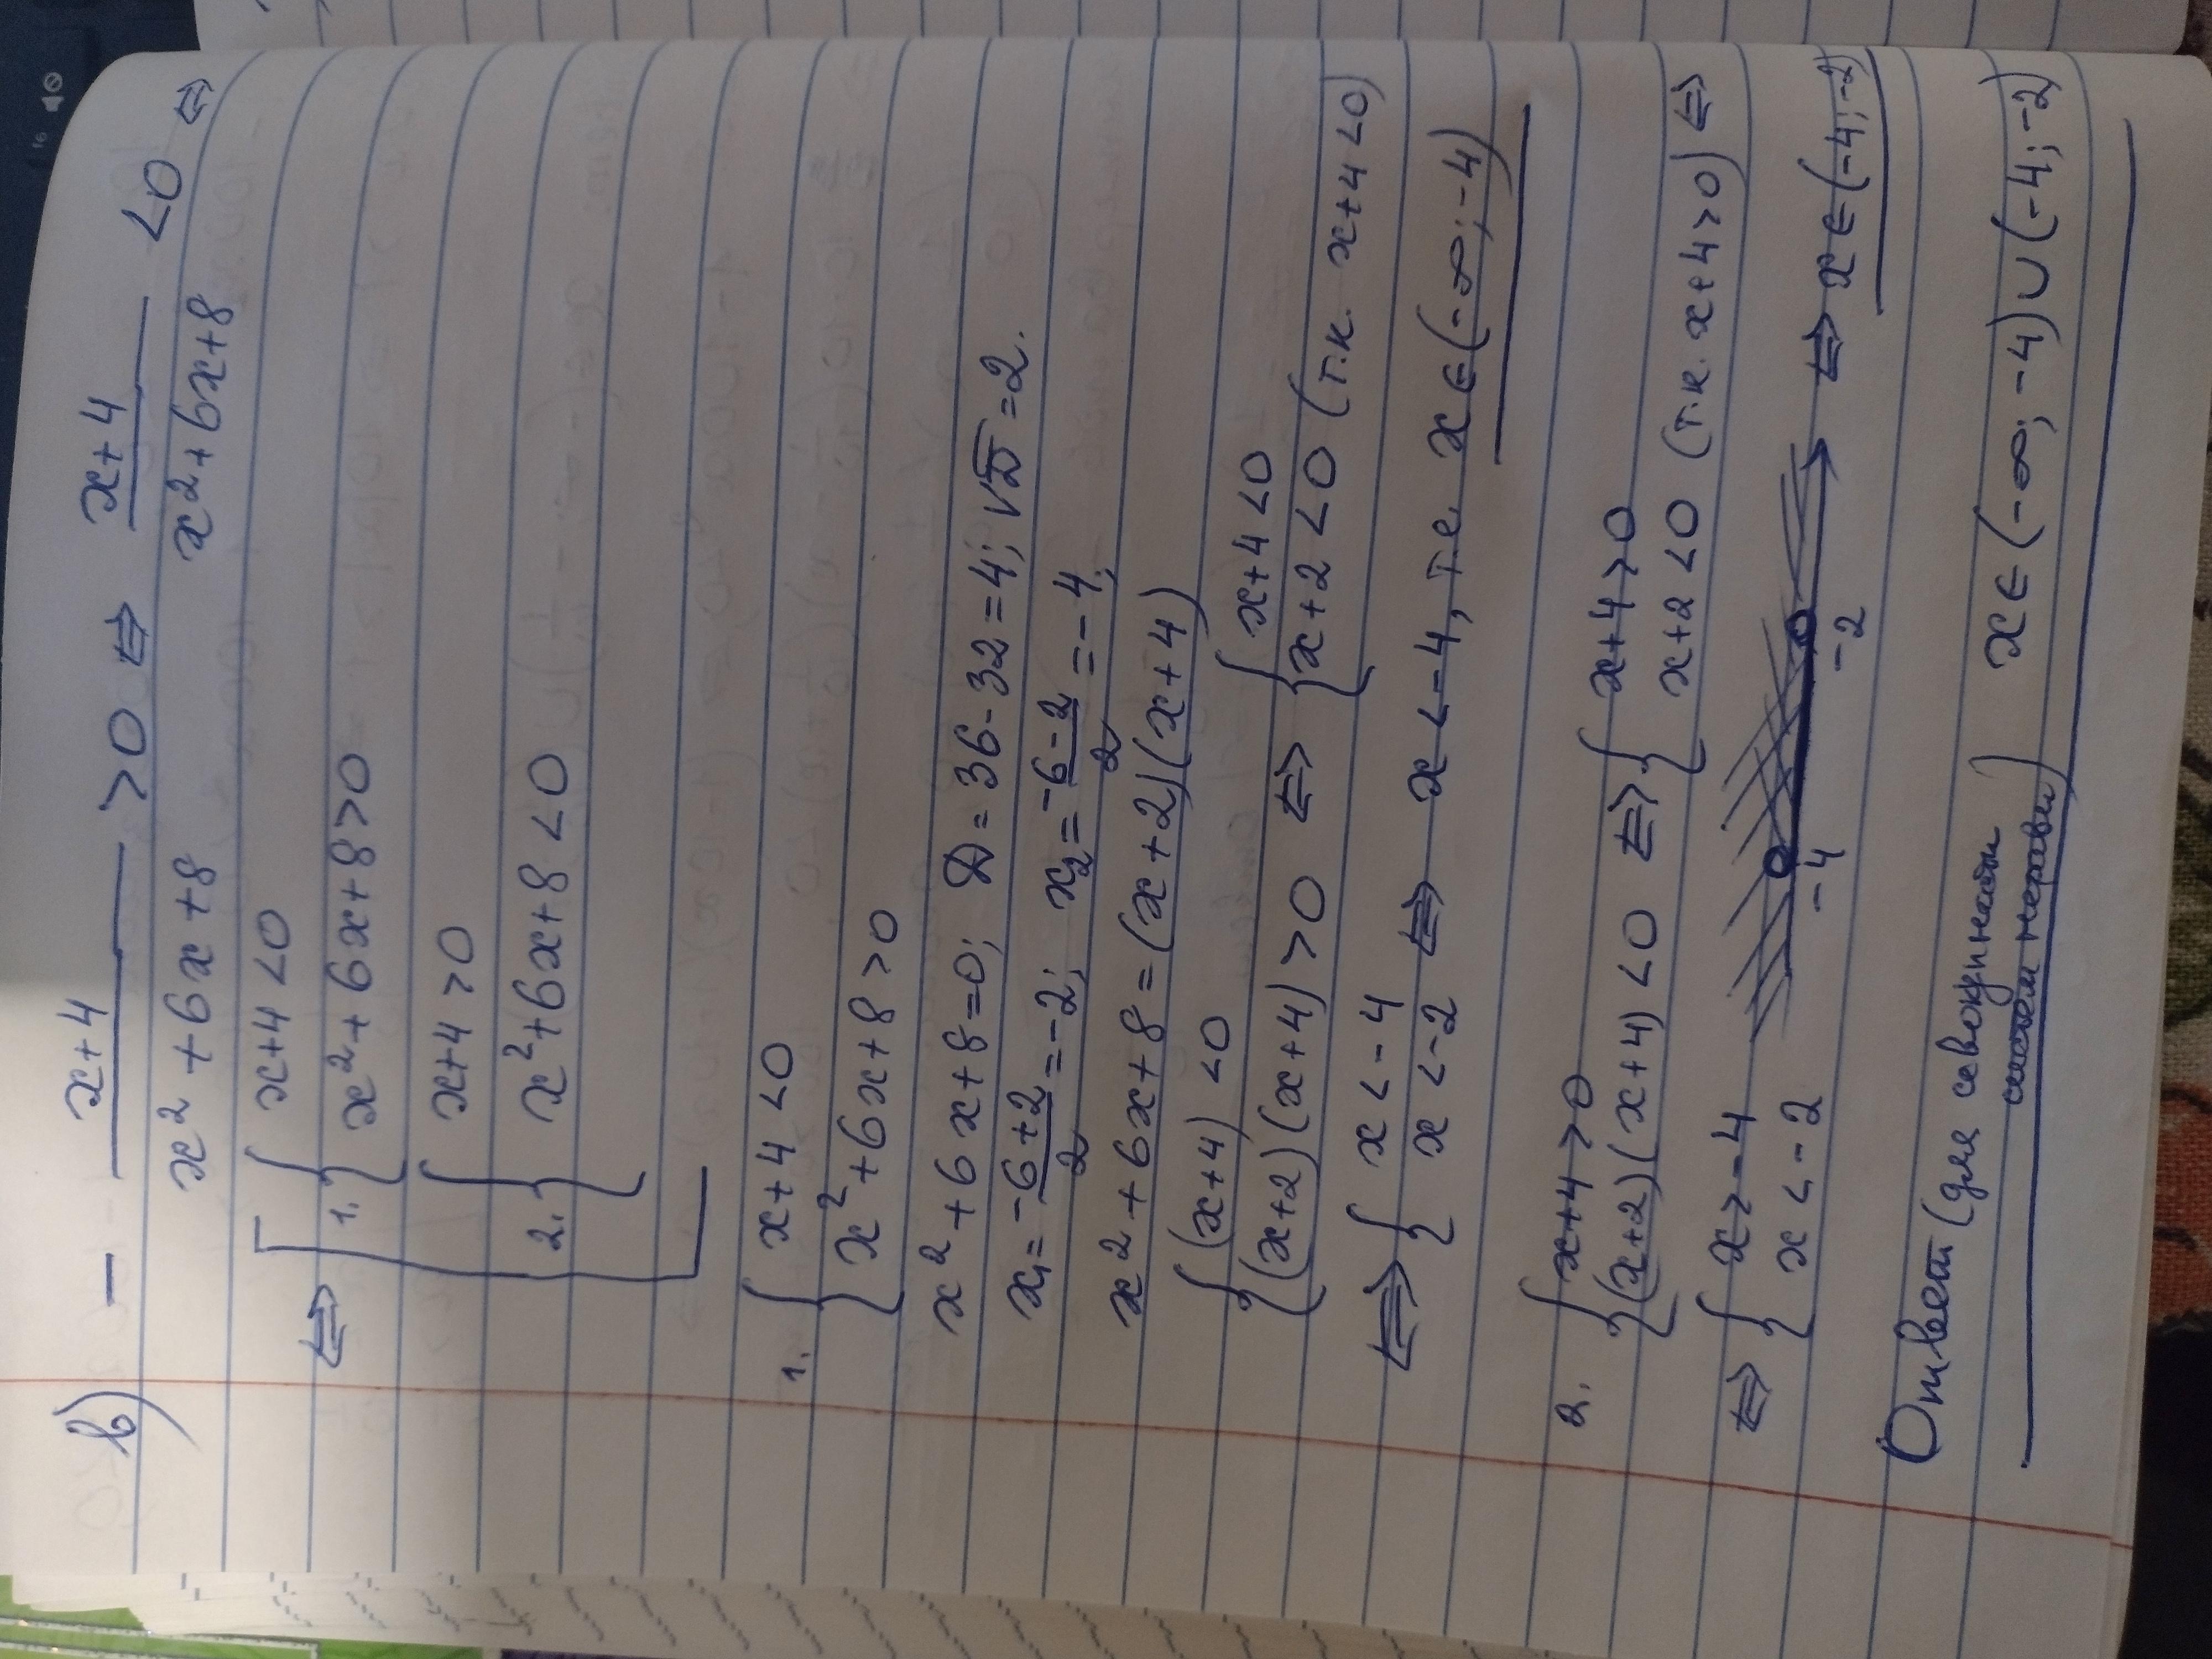 в) - x+4 / x²+6x+8 >0 ⇔ x+4 / x²+6x+8 <0 ⇔
⇔ [ 1. { x+4<0
x²+6x+8>0
2. { x+4>0
x²+6x+8<0
1. { x+4<0
x²+6x+8>0
x²+6x+8=0; D=36-32=4; √D=2.
x₁= -6+2 / 2 =-2; x₂= -6-2 / 2 =-4;
x²+6x+8=(x+2)(x+4)
{ (x+4)<0
(x+2)(x+4)>0 ⇔ { x+4<0
x+2<0 (т.к. x+4<0)
⇔ { x<-4
x<-2 ⇔ x<-4, т.е. x∈(-∞;-4)
2. { x+4>0
(x+2)(x+4)<0 ⇔ { x+4>0
x+2<0 (т.к. x+4>0) ⇔
⇔ { x>-4
x<-2
-4 -2
⇔ x∈(-4;-2)
Ответ (для
систем нерав) x∈(-∞;-4)∪(-4;-2)
16